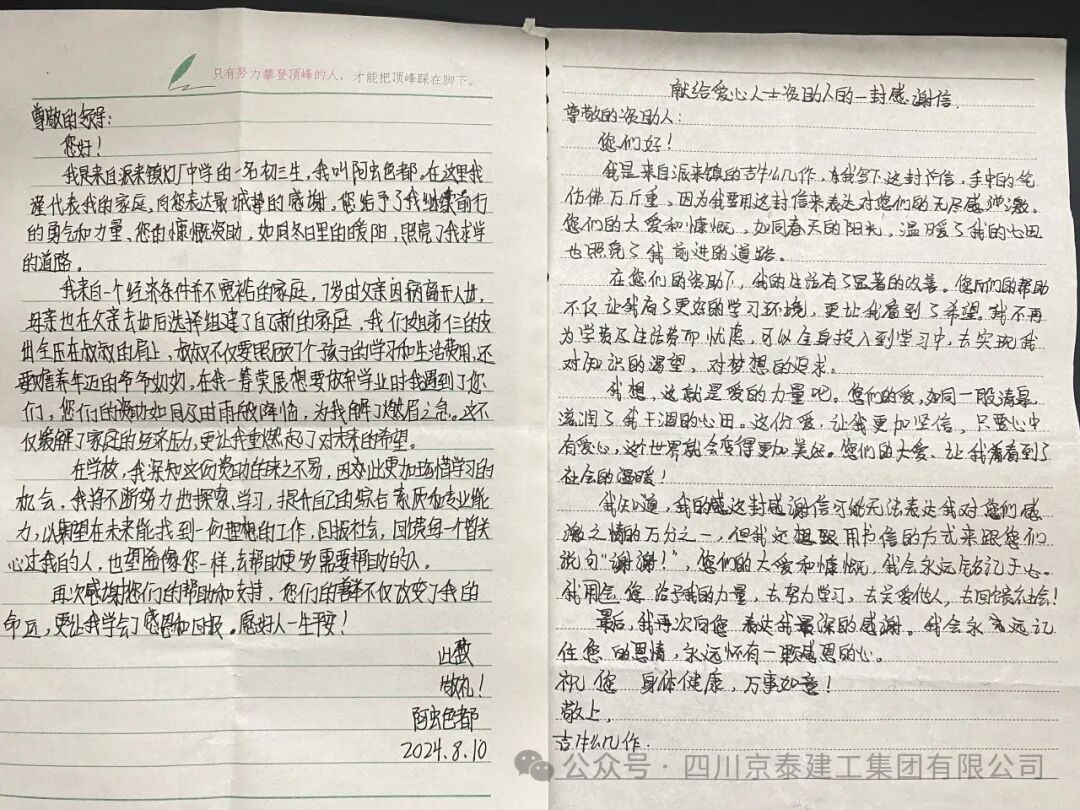 只有努力攀登顶峰的人，才能把顶峰踩在脚下。
尊敬的领导：
您好！
我是来自派来镇灯厂中学的一名初三生，我叫阿虫色都，在这里我
谨代表我的家庭，向您表达最诚挚的感谢，您给予了我继续前行
的勇气和力量，您的慷慨资助，如同冬日里的暖阳，照亮了我求学
的道路。
我来自一个经济条件并不宽裕的家庭，7岁由父亲因病离开人世，
母亲也在父亲去世后选择组建了自己新的家庭，我们姐弟仨的
全压在叔叔的肩上，叔叔不仅要照顾7个孩子的学习和生活费用，还
要赡养年迈的爷爷奶奶，在我一筹莫展想要放弃学业时我遇到了您
们，您们的资助如同及时雨般降临，为我解了燃眉之急。这不
仅缓解了家庭的经济压力，更让我重燃起了对未来的希望。
在学校，我深知这份资助的来之不易，因此更加珍惜学习的
机会，我将不断努力地探索、学习，提升自己的综合素质和专业能
力，以期望在未来能找到一份理想的工作，回报社会，回馈每一个曾关
心过我的人，也想像您一样，去帮助更多需要帮助的人。
再次感谢您们的帮助和支持，您们的善举不仅改变了我的
命运，更让我学会了感恩和回报。愿好人一生平安！
此致
敬礼！
阿虫色都
2024.8.10
献给爱心人士资助人的一封感谢信.
尊敬的资助人：
您们好！
我是来自派来镇的吉牛么几作，当我写下这封信，手中的笔
仿佛万斤重，因为我要用这封信来表达对您们的无尽感激。
您们的大爱和慷慨，如同春天的阳光，温暖了我的心田
也照亮了我前进的道路。
在您们的资助下，我的生活有了显著的改善。您们的帮助
不仅让我有了更好的学习环境，更让我看到了希望。我不再
为学费及生活费而忧虑，可以全身投入到学习中，去实现我
对知识的渴望，对梦想的追求。
我想，这就是爱的力量吧。您们的爱，如同一股清泉
滋润了我干涸的心田。这份爱，让我更加坚信，只要心中
有爱心，这个世界就会变得更加美好。您们的大爱，让我看到了
社会的温暖！
我知道，我的这封感谢信可能无法表达我对您们感
激之情的万分之一，但我还想用书信的方式来跟您们
说句“谢谢！”，您们的大爱和慷慨，我会永远铭记于心。
我用会您给予我的力量，去努力学习，去关爱他人，去回报社会！
最后，我再次向您表达我最深的感谢。我会永远记
住您的恩情，永远怀有一颗感恩的心。
祝您 身体健康，万事如意！
敬上，
吉牛么几作.
公众号·四川京泰建工集团有限公司